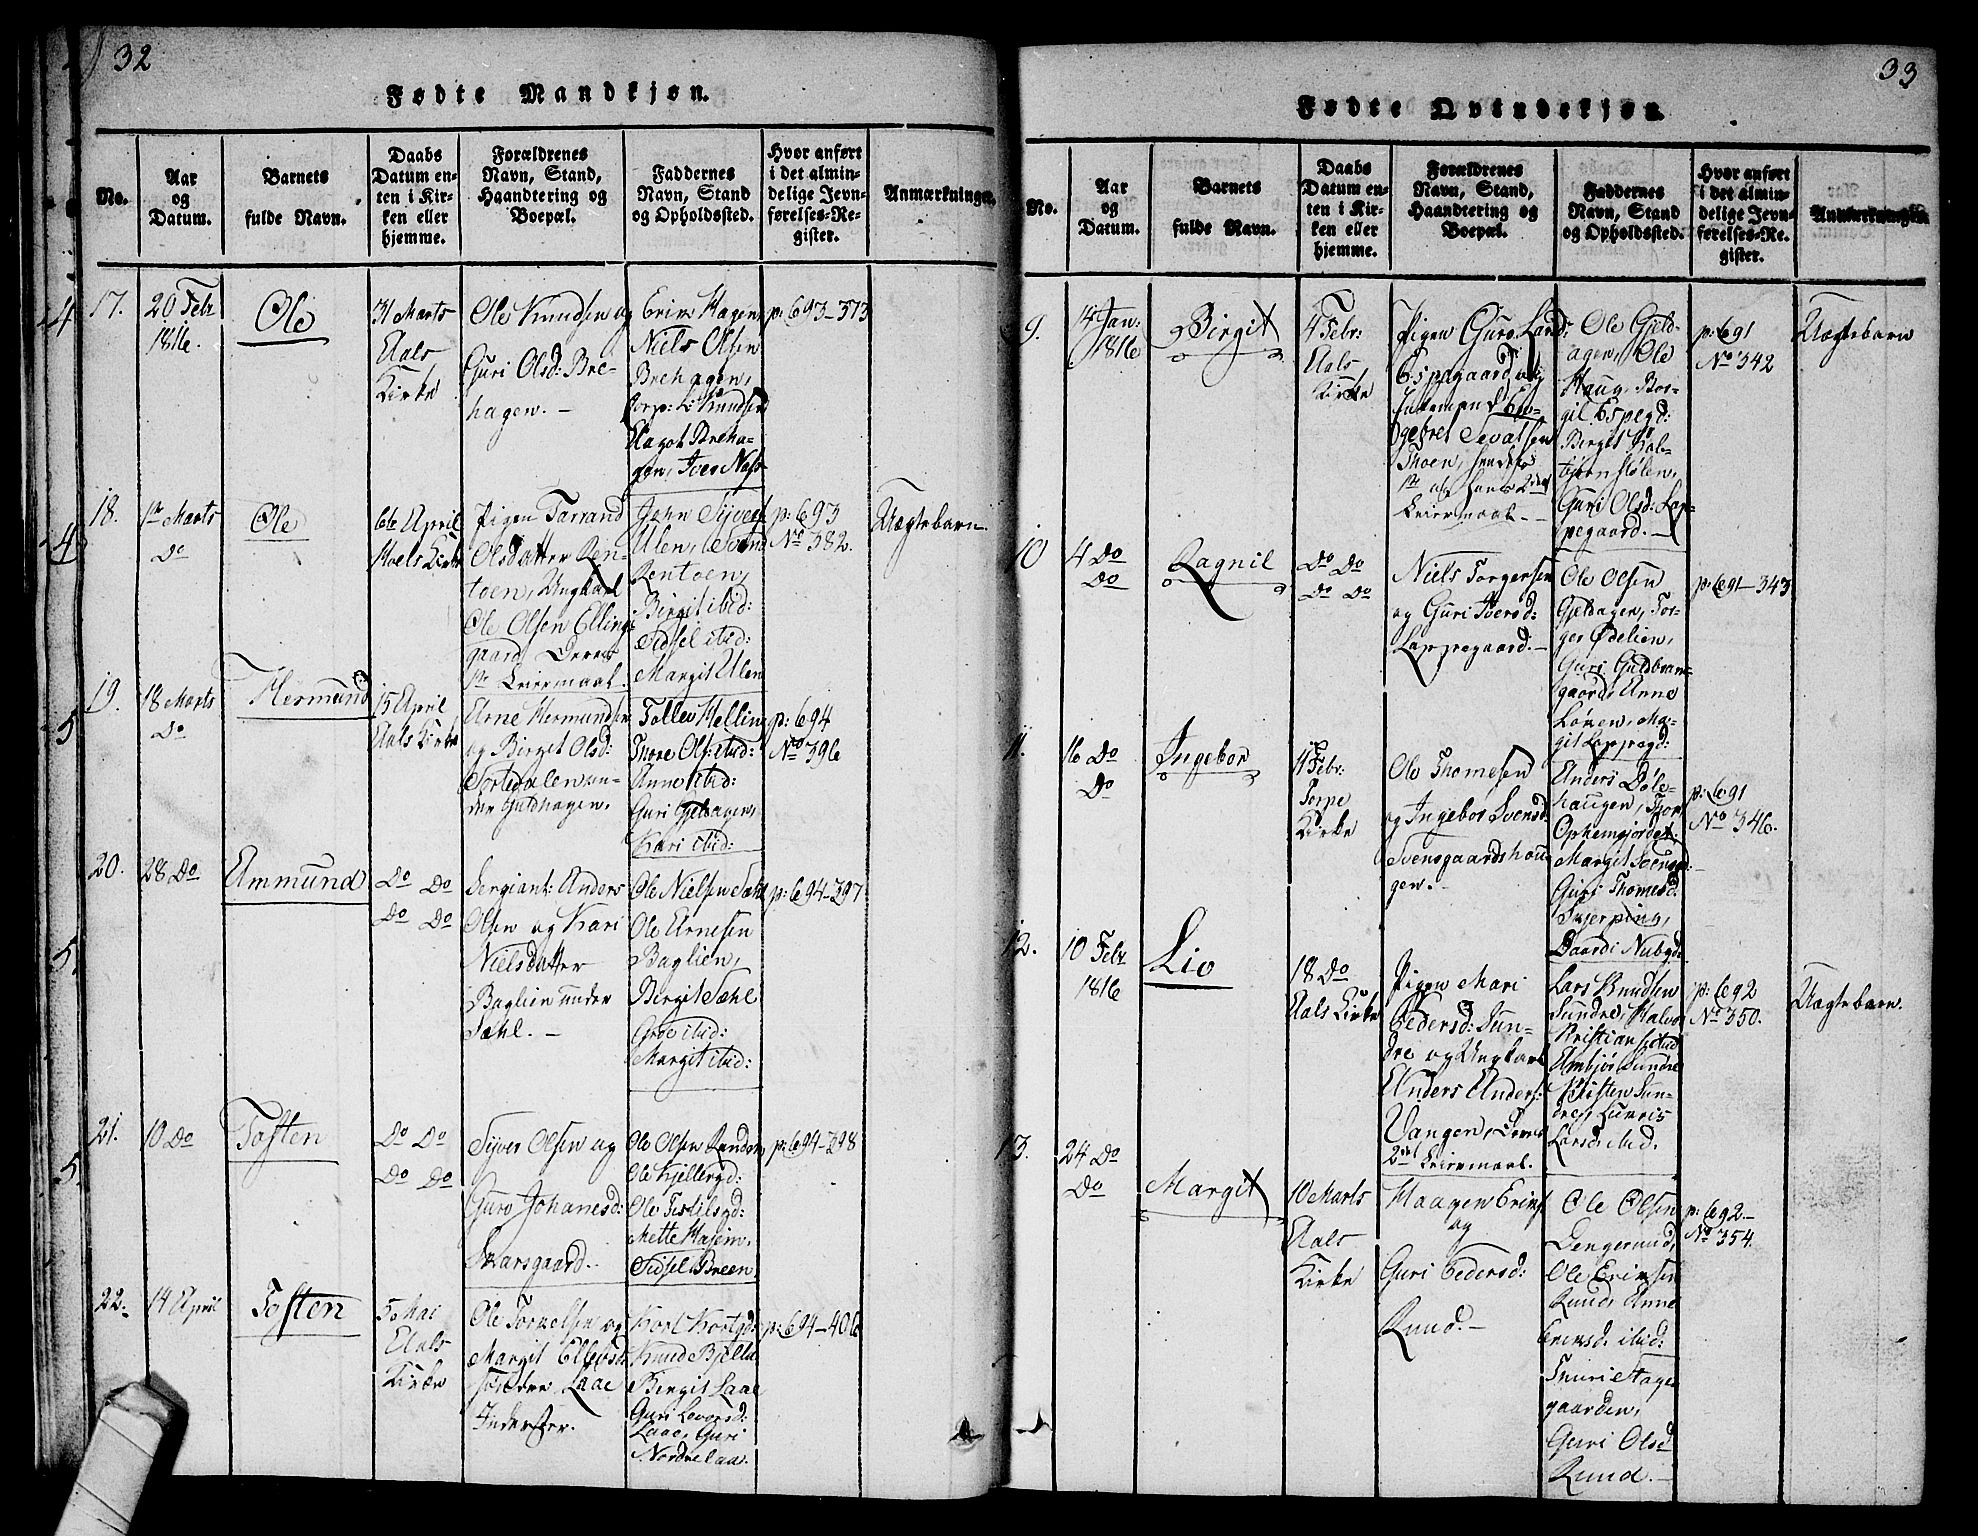 32
Fødte Mandkjøn.
No.
Aar
og
Datum.
Barnets
fulde Navn.
Daabs
Datum en-
ten i Kir-
ken eller
hjemme.
Forældrenes
Navn, Stand,
Haandtering og
Boepæl.
Faddernes
Navn, Stand
og Opholdssted.
Hvor anført
i det almin-
delige Jevn-
førelses-Re-
gister.
Anmærkninger.
17.
20 Febr
1816.
Ole
31 Marts
Aals
Kirke
Ole Knudsen og
Guri Olsd: Bre-
hagen. –
Erik Hagen,
Niels Olsen
Brehagen,
Corp: K: Knudsen
Aagot Breha-
gen, Iver Næss
p: 693–373
18.
1ste Marts
Do
Ole
6te April
Hoels Kirke
Pigen Tarrand
Olsdatter Ren-
toen, Ungkarl
Ole Olsen Ellings
gaard, Deres
1ste Leiermaal.
John Syvers
Ulen, Svend
Rentoen,
Birgit ibid:
Sidsel ibid:
Margit Ulen
p: 693
No 382.
Uægtebarn
19.
18 Marts
Do
Hermund
15 April
Aals Kirke
Arne Hermundsen
og Birget Olsd:
Tortedalen un-
der Guldhagen.
Tollev Helling
Thore Ols: ibid:
Anne ibid:
Guri Gjeldagen,
Kari ibid:
p: 694
No 396
20.
28 Do
Ammund
Do Do
Do Do
Sergiant: Anders
Olsen og Kari
Nielsdatter
Baglien under
Sæhl. –
Ole Nielsen Sæhl
Ole Arnesen
Baglien,
Birgit Sæhl
Groe ibid:
Margit ibid:
p: 694–397
21.
10 Do
Tosten
Do Do
Do Do
Syver Olsen og
Guro Johanesd:
Skarsgaard.
Ole Olsen
Ole Kjellergd:
Ole
Mette
Sidsel Breen.
p: 694–398
22.
14 April
Tosten
5 Mai
Aals
Kirke
Ole Torkelsen og
Margit Ellevsd:
Søndre Laae
Inderster.
Karl Kortgd:
Knud Bjella
Birgit Laae
Guri Levorsd:
Laae, Guri
Nordre Laa.
p: 694–406
33
Fødte Qvindekjøn.
No.
Aar
og
Datum.
Barnets
fulde Navn.
Daabs
Datum en-
ten i Kir-
ken eller
hjemme.
Forældrenes
Navn, Stand,
Haandtering og
Boepæl.
Faddernes
Navn, Stand
og Opholdssted.
Hvor anført
i det almin-
delige Jevn-
førelses-Re-
gister.
Anmærkninger.
9.
14 Jan:
1816
Birgit
4 Febr:
Aals
Kirke
Pigen Guro
Espegaard og
Enkemand En-
gebret Sevatsen
Thoen, hendes
1ste og hans 2det
Leiermaal. –
Ole Guld-
agen, Ole
Haug, Bor-
gil Espegd:
Birgit Kal-
Guri Olsd: Lap-
pegaard. –
p: 691
No 342
Uægtebarn
10
4 Do
Do
Ragnil
Do Do
Do Do
Niels Torgersen
og Guri Iversd:
Lappegaard. –
Ole Olsen
Gjeldagen, Tor-
ger Ødelien,
Guri Guldbran-
gaard, Anne
Lønen, Ma-
git Lappegd:
p: 691–343
11.
16 Do
Do
Ingebor
4 Febr:
Torpe
Kirke
Ole Thomesen
og Ingebor Svensd:
Svensgaardshou-
gen. –
Anders Døle-
haugen, Thor
Ophemgjordet
Margit Svensgd:
Guri Thomesd:
Skjerping,
Daardi Nubgd:
p: 691
No 346.
12.
10 Febr
1816
Liv
18 Do
Aals Kirke
Pigen Mari
Pedersd: Sun-
dre og Ungkarl
Anders Anders:
Vangen, Deres
2det Leiermaal.
Lars Knudsen
Sundre, Halvor
Kristians: ibid
Ambjør Sundre
Kristen Sun-
dre,
Larsd: ibid.
p: 692
No 350.
Uægtebarn.
13.
24 Do
Do
Margit
10 Marts
Aals
Kirke
Haagen Eriks:
og
Guri Pedersd:
Ruud. –
Ole Olsen
Lengerud,
Ole Eriksen
Ruud, Anne
Eriksd: ibid:
Thuri Hage
gaarden,
Guri Olsd
Ruud. –
p: 692–
No 354.